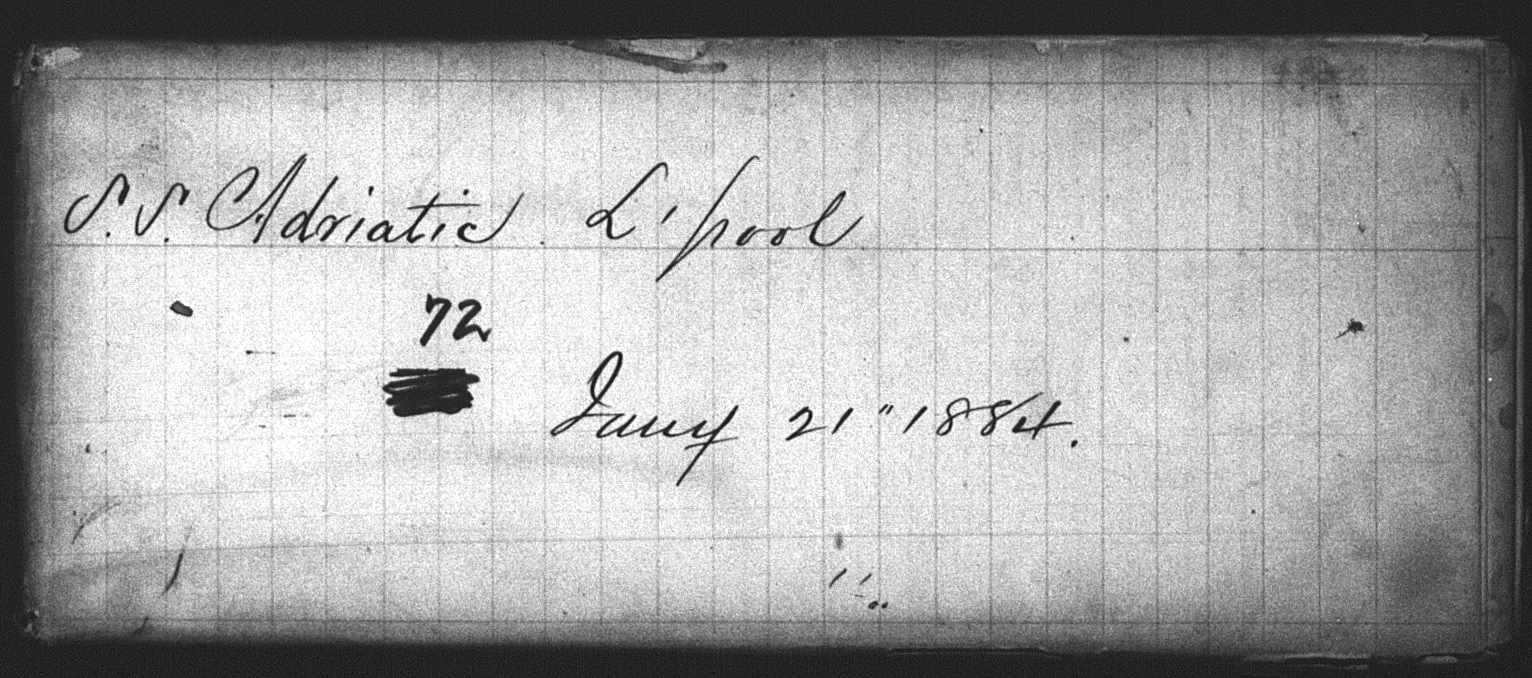 S.S. Adriatic L'pool
72
Jany 21" 1884.